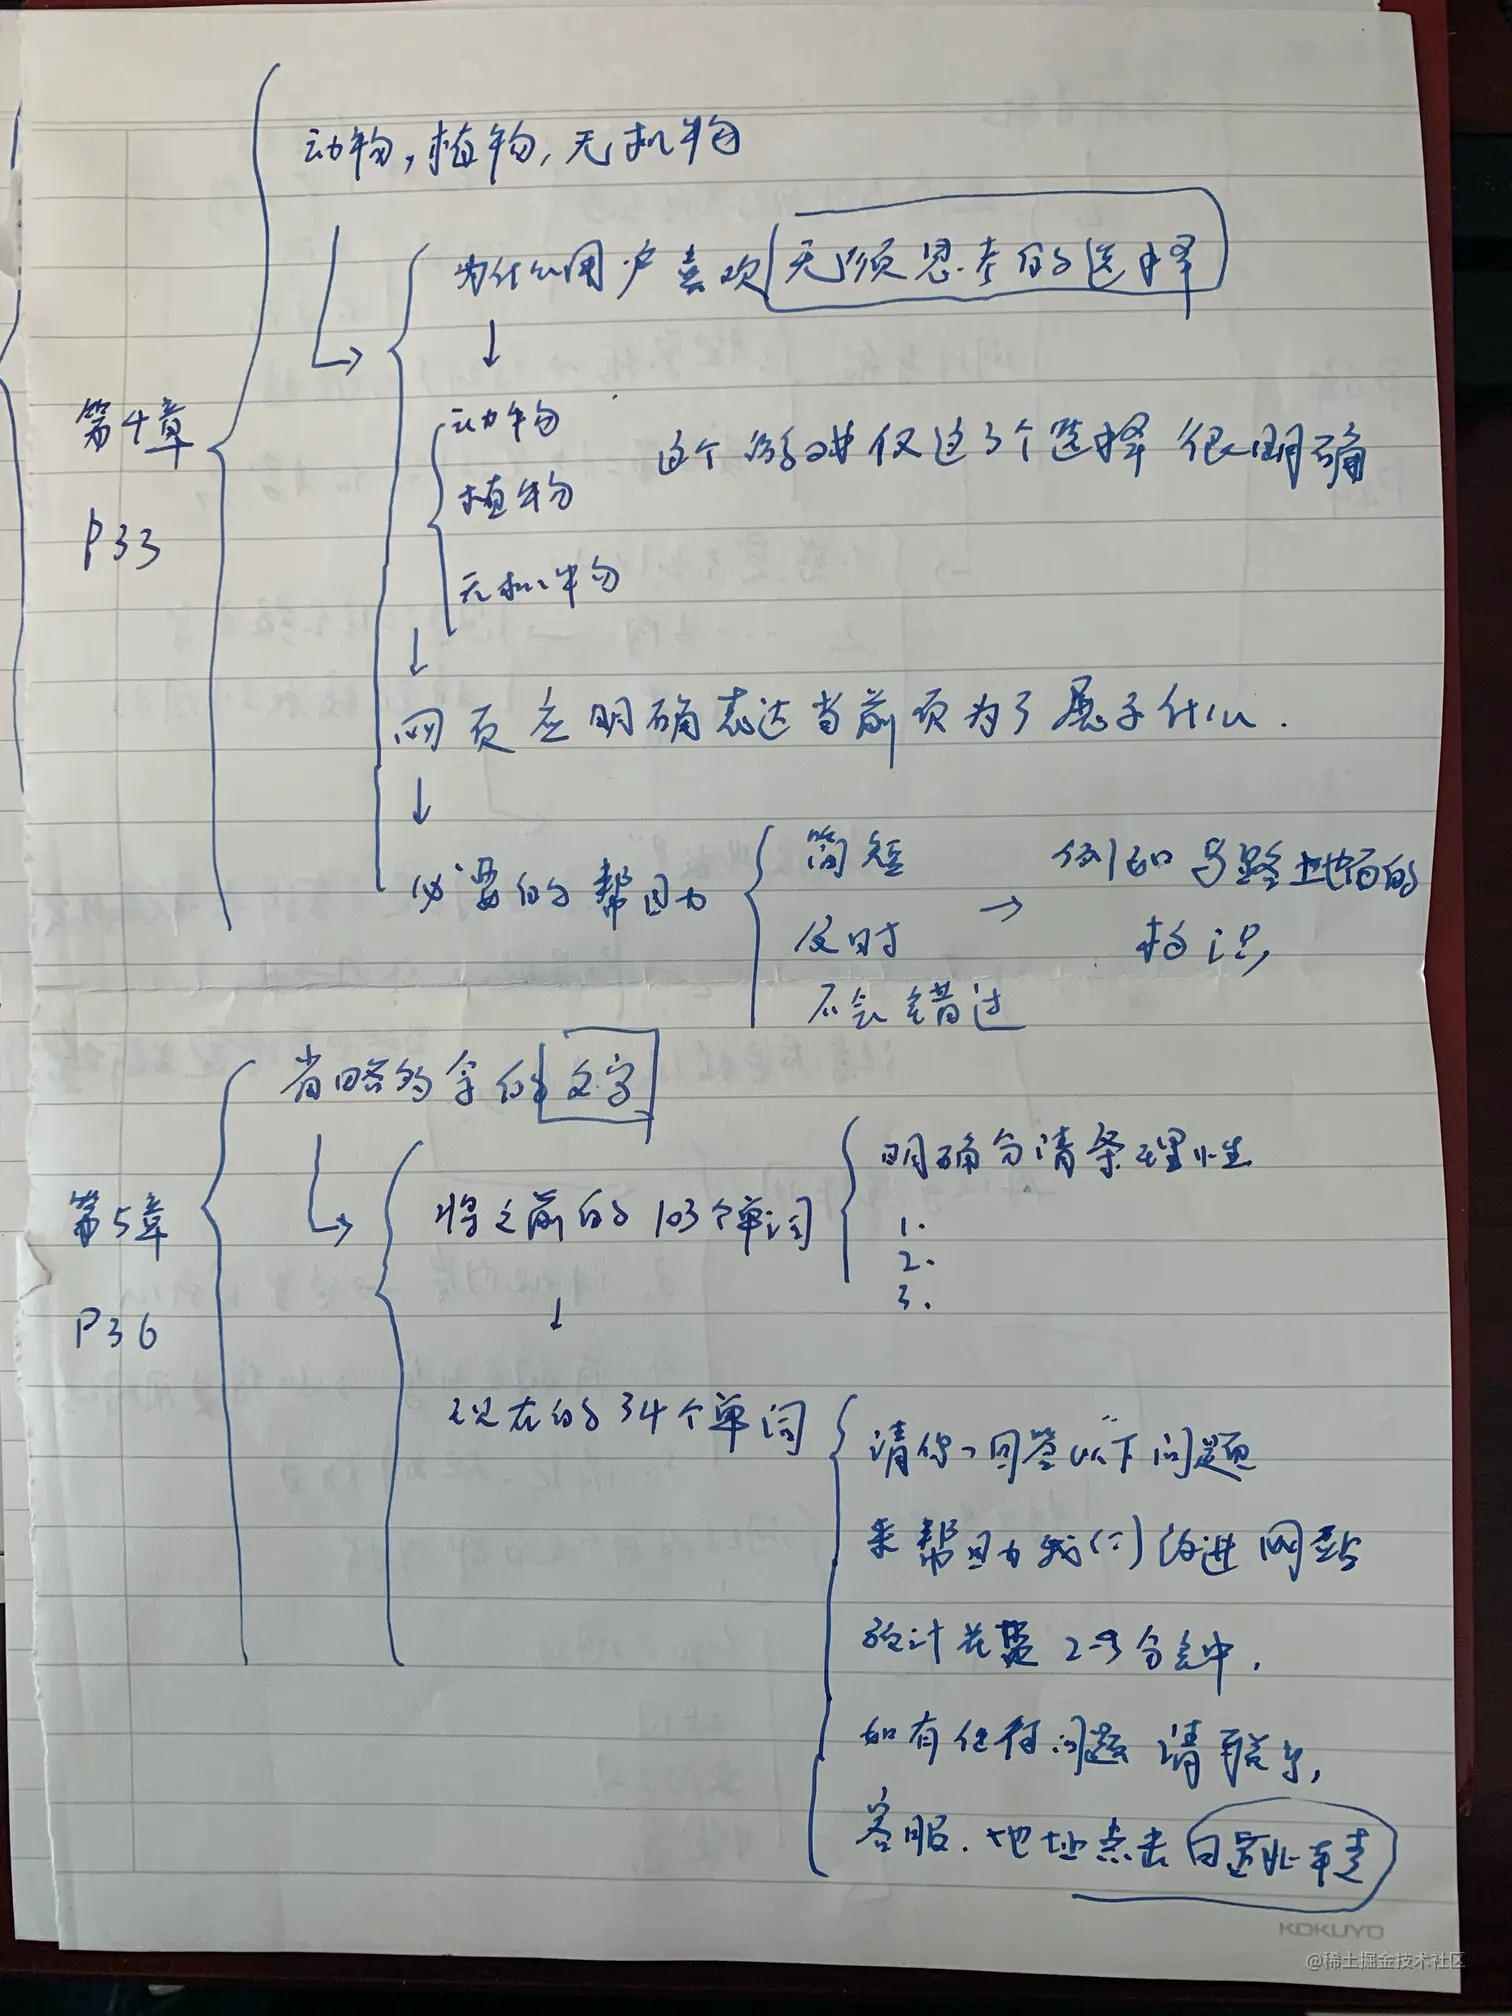 动物,植物,无机物
为什么用户喜欢 无须思考的选择
↓
第4章
P33
动物
植物
无机物
这个游戏仅这3个选择 很明确
↓
网页应明确表达当前页为了展示什么.
↓
必要的帮助
简短
及时
不会错过
→ 例如马路地面的
标识
省略多余的文字
第5章
P36
将之前的103个单词
明确分清条理性
1.
2.
3.
↓
现在的34个单词
请你,回答以下问题
来帮助我(们)改进网站
预计花费 2-3分钟.
如有任何问题 请联系,
客服.地址点击
KOKUYO
@稀土掘金技术社区